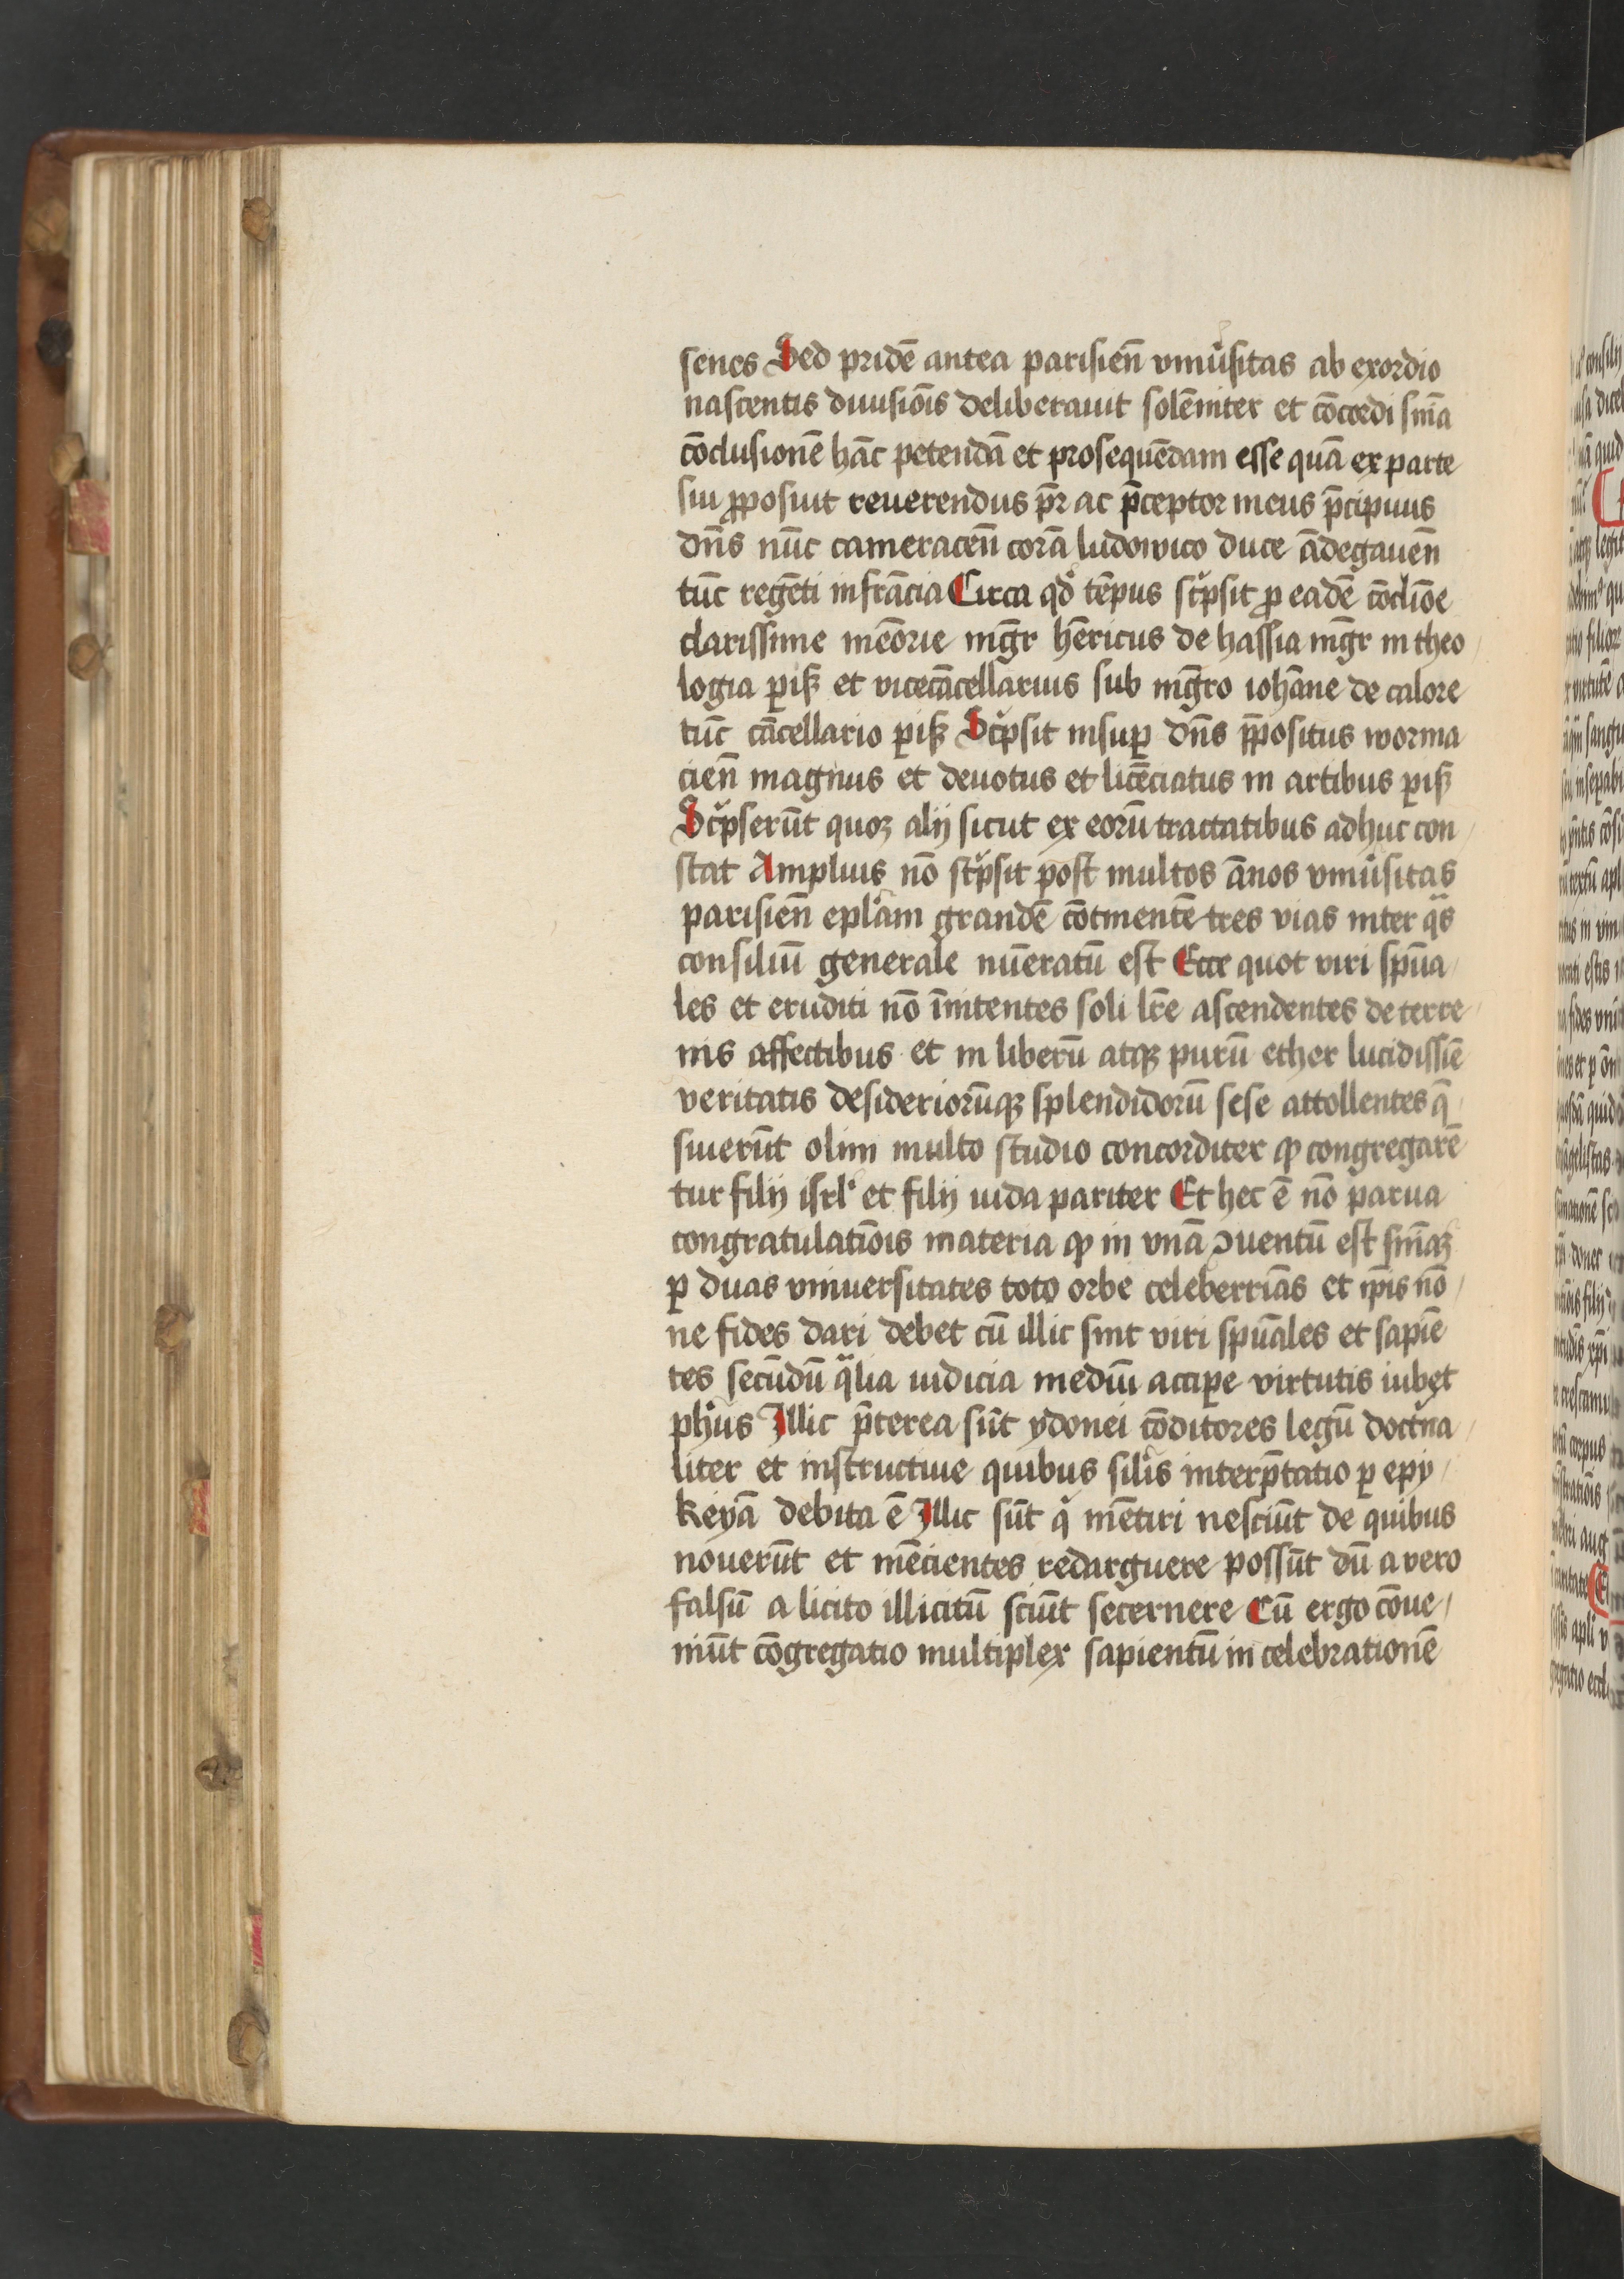 senes Sed pridē antea parisien̄ vniũsitas ab exordio
nascentis diuisiōis deliberauit solēniter et cōcordi sn̄ia
cōclusionē hāc petendā et prosequēdam esse quā ex parte
sui ꝓposuit reuerendus pr̄ ac p̄ceptor meus p̄cipuus
dn̄s nūc cameracen̄ corā ludowico duce ādegauen̄
tūc regēti in frācia Circa qđ tēpus scͥpsit ꝓ eadē cōclīoē
clarissime meōrie mgr̄ hēricus de hassia mgr̄ in theo
logia ꝑiß et vicecācellarius sub mgr̄o iohāne de calore
tūc cācellario ꝑiß Scͥpsit insuꝑ dn̄s p̄positus worma
cien̄ magnus et deuotus et licēciatus in artibus ꝑiß
Scͥpserūt quoꝫ alij sicut ex eorū tractatibus adhuc con
stat Amplius nō scͥpsit post multos ānos vniũsitas
parisien̄ epl̄am grandē cōtinentē tres vias inter qͣs
consiliū generale nūeratū est Ecce quot viri spūa
les et eruditi nō īnitentes soli lr̄e ascendentes de terre
nis affectibus et in liberū atqꝫ purū ether lucidissīe
veritatis desideriorūqꝫ splendidorū sese attollentes q̄
siuerūt olim multo studio concorditer ꝙ congregarē
tur filij isrl̕ et filij iuda pariter Et hec ē nō parua
congratulatiōis materia ꝙ in vnā ꝯuentū est sn̄iaꝫ
ꝑ duas vniuersitates toto orbe celeberrīas et ip̄is nō
ne fides dari debet cū illic sint viri spūales et sapiē
tes secūdū qͣlia iudicia mediū accipe virtutis iubet
ph̄us Illic p̄terea sūt ydonei cōditores legū doctͥna
liter et instructiue quibus sil̄is interp̄tatio ꝑ epy
keyā debita ē Illic sūt qͥ mētiri nesciūt de quibus
nouerūt et mēcientes redarguere possūt dū a vero
falsū a licito illicitū sciūt secernere Cū ergo cōue
niūt cōgregatio multiplex sapientū in celebrationē